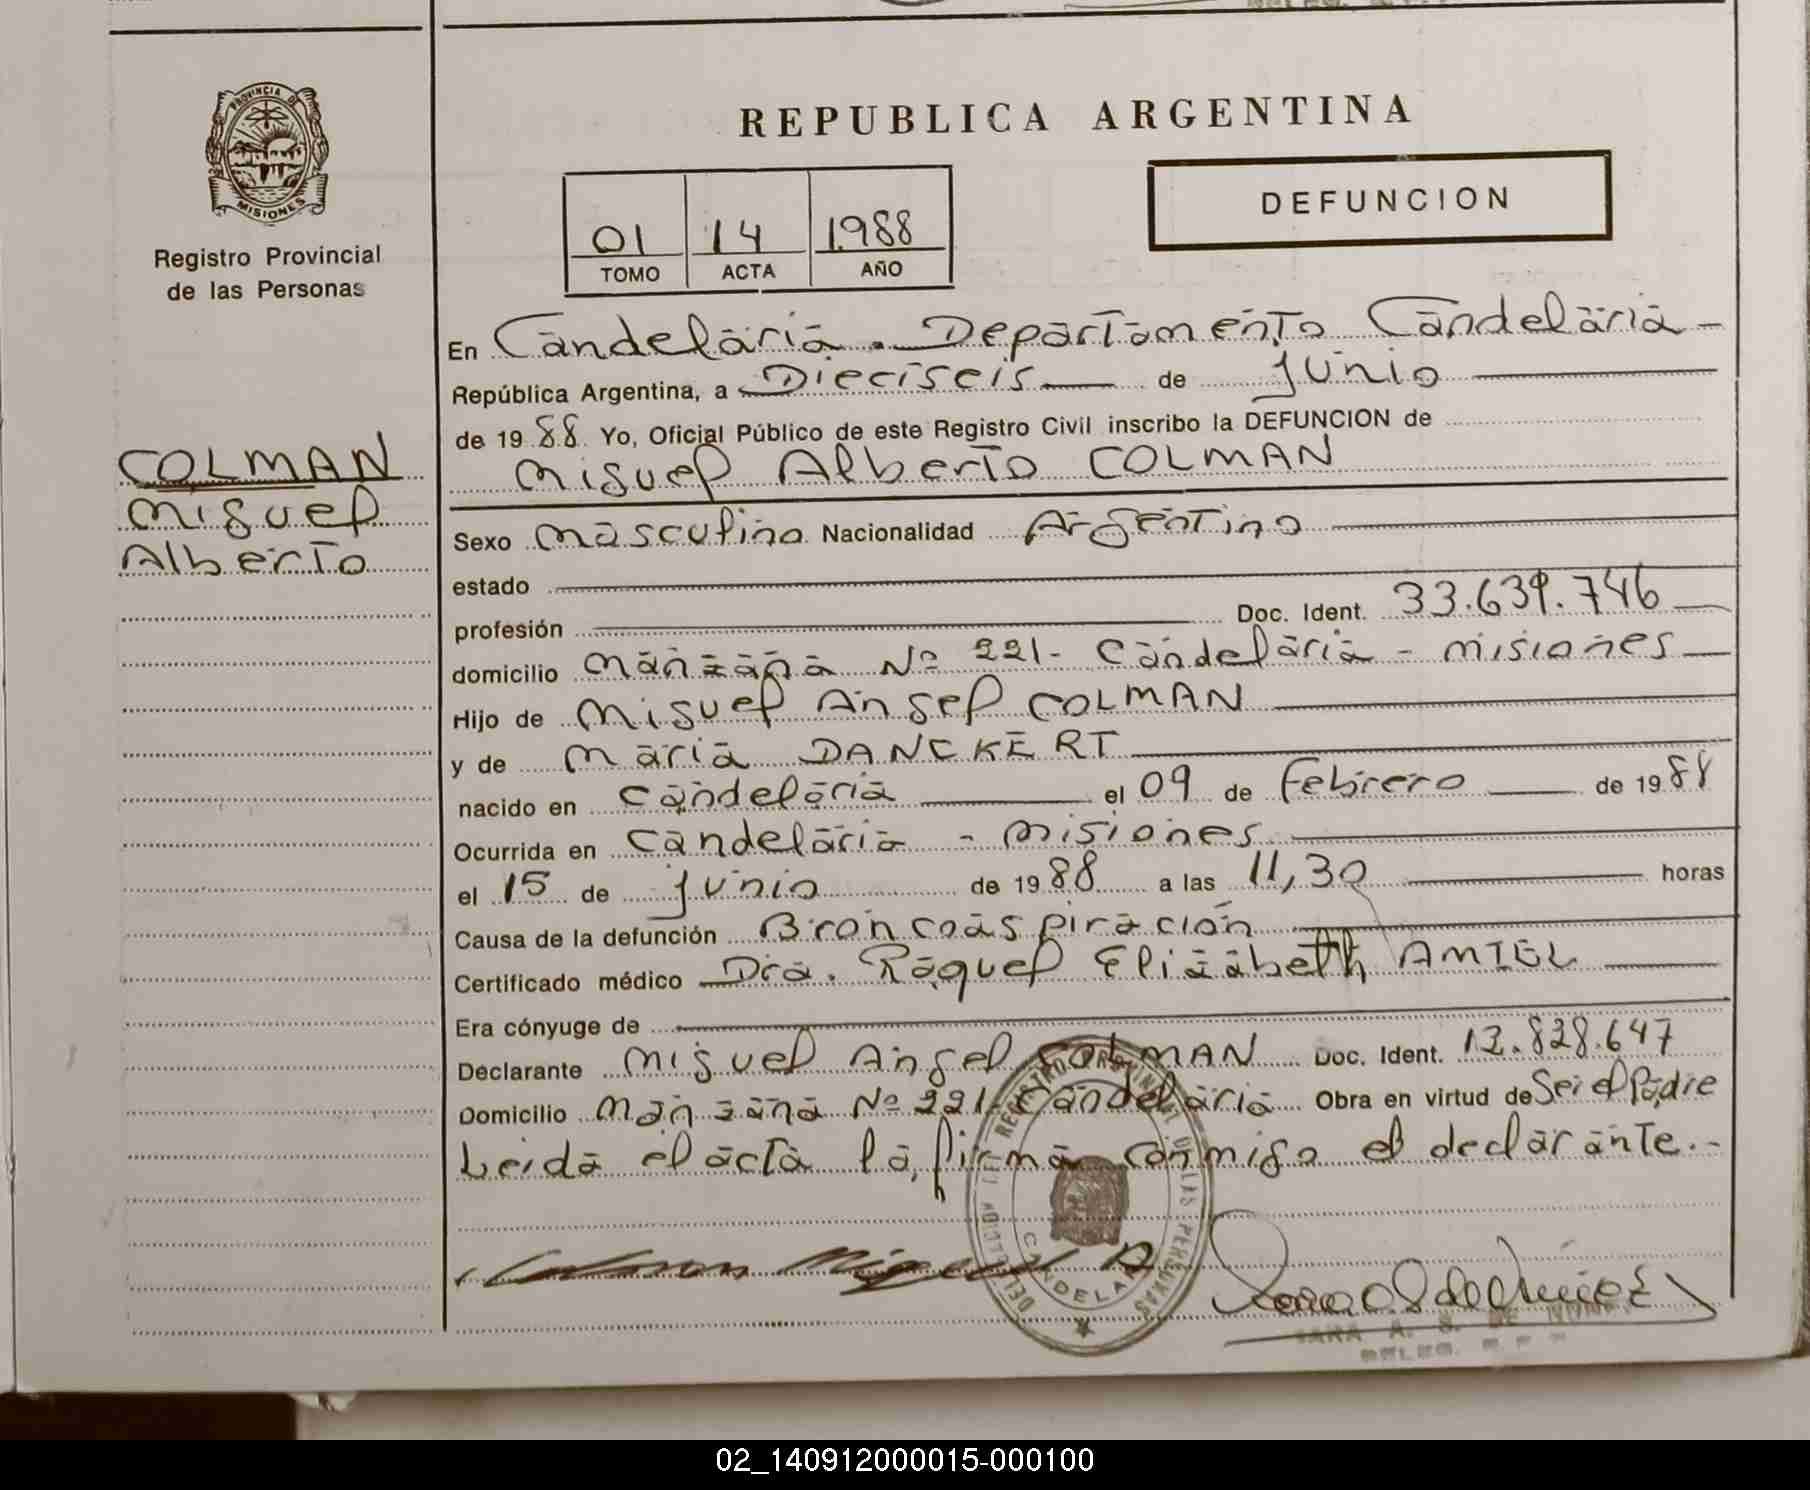 PROVINCIA DE
MISIONES
Registro Provincial
de las Personas
COLMAN
Miguel
Alberto
REPUBLICA ARGENTINA
01 14 1988
TOMO ACTA AÑO
DEFUNCION
En Candelaria. Departamento Candelaria -
República Argentina, a Dieciseis de junio
de 1988 Yo, Oficial Público de este Registro Civil inscribo la DEFUNCION de
Miguel Alberto COLMAN
Sexo Masculino Nacionalidad Argentino
estado
profesión Doc. Ident. 33.639.746
domicilio Manzana Nº 221- Candelaria - Misiones
Hijo de Miguel Angel COLMAN
y de Maria DANCKERT
nacido en Candelaria el 09 de Febrero de 1988
Ocurrida en Candelaria - Misiones
el 15 de junio de 1988 a las 11,30 horas
Causa de la defunción Broncoaspiración
Certificado médico Dra. Raquel Elizabeth AMIEL
Era cónyuge de
Declarante Miguel Angel COLMAN Doc. Ident. 12.828.647
Domicilio Manzana Nº 221 Candelaria Obra en virtud de Ser el Padre
Leida el acta la firma conmigo el declarante.-
REGISTRO PROVINCIAL DE LAS PERSONAS
CANDELARIA
Colman Miguel A
SARA A. S. DE
DELEG.
02_140912000015-000100